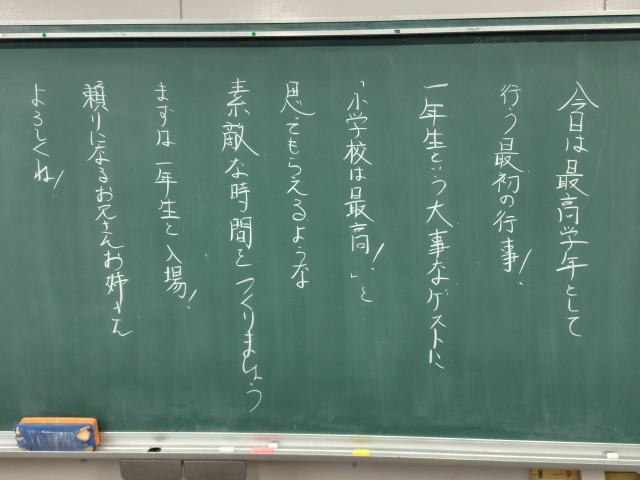 今日は最高学年として
行う最初の行事!
一年生という大事なゲストに
「小学校は最高!」と
思ってもらえるような
素敵な時間をつくりましょう
まずは一年生と入場!
頼りになるお兄さんお姉さん
よろしくね!